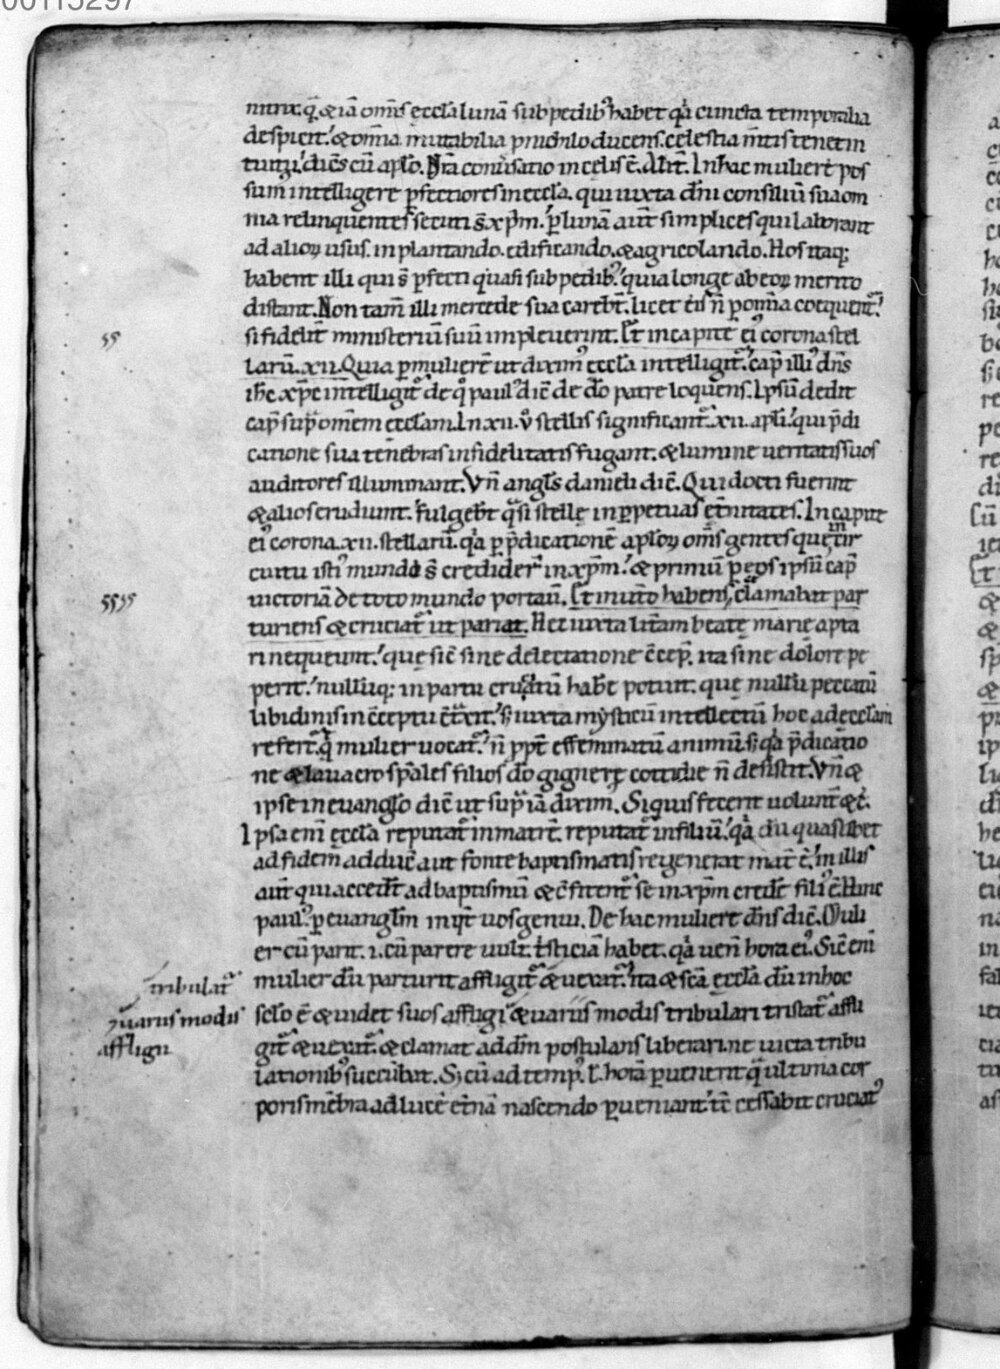 00115297
mira. q̄ & iā om̄s eccl̄a lunā sub pedib' habet q̄a cuncta temporalia
despicit.' & om̄ia mutabilia p nichilo ducens. celestia m̄tis tenet in
tuitu.' dicēs cū apl̄o. Nr̄a conu̾satio in celis ē. Alit̄. In hac muliere pos
sum' intelligere ꝑfectiores in eccl̄a. qui iuxta dn̄i consiliū sua om
nia relinquentes secuti s̄ xp̄m.' ꝑ lunā aut̄ simplices qui laborant
ad alioꝝ usus. in plantando. edificando. & agricolando. Hos itaq;
habent illi qui s̄ ꝑfecti quasi sub pedib'.' quia longe ab eoꝝ merito
distant. Non tam̄ illi mercede sua carebt̄. licet eis n̄ ꝑ om̄ia coequent̄.'
si fidelit̄ ministeriū suū impleuerint. Et in capite ei' corona stel
larū. xii. Quia ꝑ mulierē ut dixim' eccl̄a intelligit̄.' cap̄ illi' dn̄s
ih̄c xp̄c intelligit̄ de q̊ paul' dic̄ de dō patre loquens. Ipsū dedit
cap̄ sup̄ omēm eccl̄am. In xii. u̾ stellis significant̄. xii. apl̄i.' qui p̄di
catione sua tenebras infidelitatis fugant. & lumine ueritatis suos
auditores illuminant. Vn̄ angl̄s danieli dic̄. Qui docti fuerint
& alios erudiunt.' fulgebt̄ q̄si stelle in ꝑpetuas et̄nitates. In capite
ei' corona. xii. stellarū. q̄a ꝑ p̄dicationē apl̄oꝝ om̄s gentes que in cir
cuitu isti' mundi s̄ credider̄ in xp̄m.' & primū ꝑ eos ipsū cap̄
uictoriā de toto mundo portau̅. Et in ut̄o habens, clamabat par
turiens & cruciat̄ ut pariat. Hec iuxta litt̄am beate marie apta
ri nequeunt.' que sic̄ sine delectatione c̄cep̄. ita sine dolore pe
perit.' nullūq; in partu cruciatū hab̄e potuit. que nullū peccatū
libidinis in c̄ceptu c̄t̾xit.' s; iuxta mysticū intellectū hoc ad eccl̄am
refert̄. q̄ mulier uocat̄.' n̄ ꝓpt̄ effeminatū animū s; q̄a p̄dicatio
ne & lauacro spāles filios dō gignere cottidie n̄ desistit. Vn̄ &
ipse in euangl̄o dic̄ ut sup̄ iā dixim'. Siquis fecerit uolunt̄ & c̄.
Ipsa enī eccl̄a reputat̄ in matrē. reputat̄ in filiū.' q̄a dū quaslibet
ad fidem adduc̄ aut fonte baptismatis regenerat mat̄ ē.' in illis
aut̄ qui accedt̄ ad baptismū & c̄fitent̄ se in xp̄m credē fili' ē. Hinc
paul' ꝑ euangl̄m inqt̄ uos genui. De hac muliere dn̄s dic̄. Muli
er cū parit. i. cū parere uult. t̾sticiā habet. q̄a uen̄ hora ei'. Sic̄ enī
mulier dū parturit affligit̄ & uexat̄.' ita & sc̄a eccl̄a dū in hoc
sc̄lo ē & uidet suos affligi.' & uariis modis tribulari tristat̄ affli
git̄ & uexat̄. & clamat ad dn̄m postulans liberari. ne uicta tribu
lationib' succūbat. S; cū ad temp' l̄ horā ꝑuenerit q̄ ultima cor
poris mēbra ad lucē et̄nā nascendo ꝑueniant.' tc̄ cessabit cruciat'
tribulat̄
⁊ uariis modis
affligit